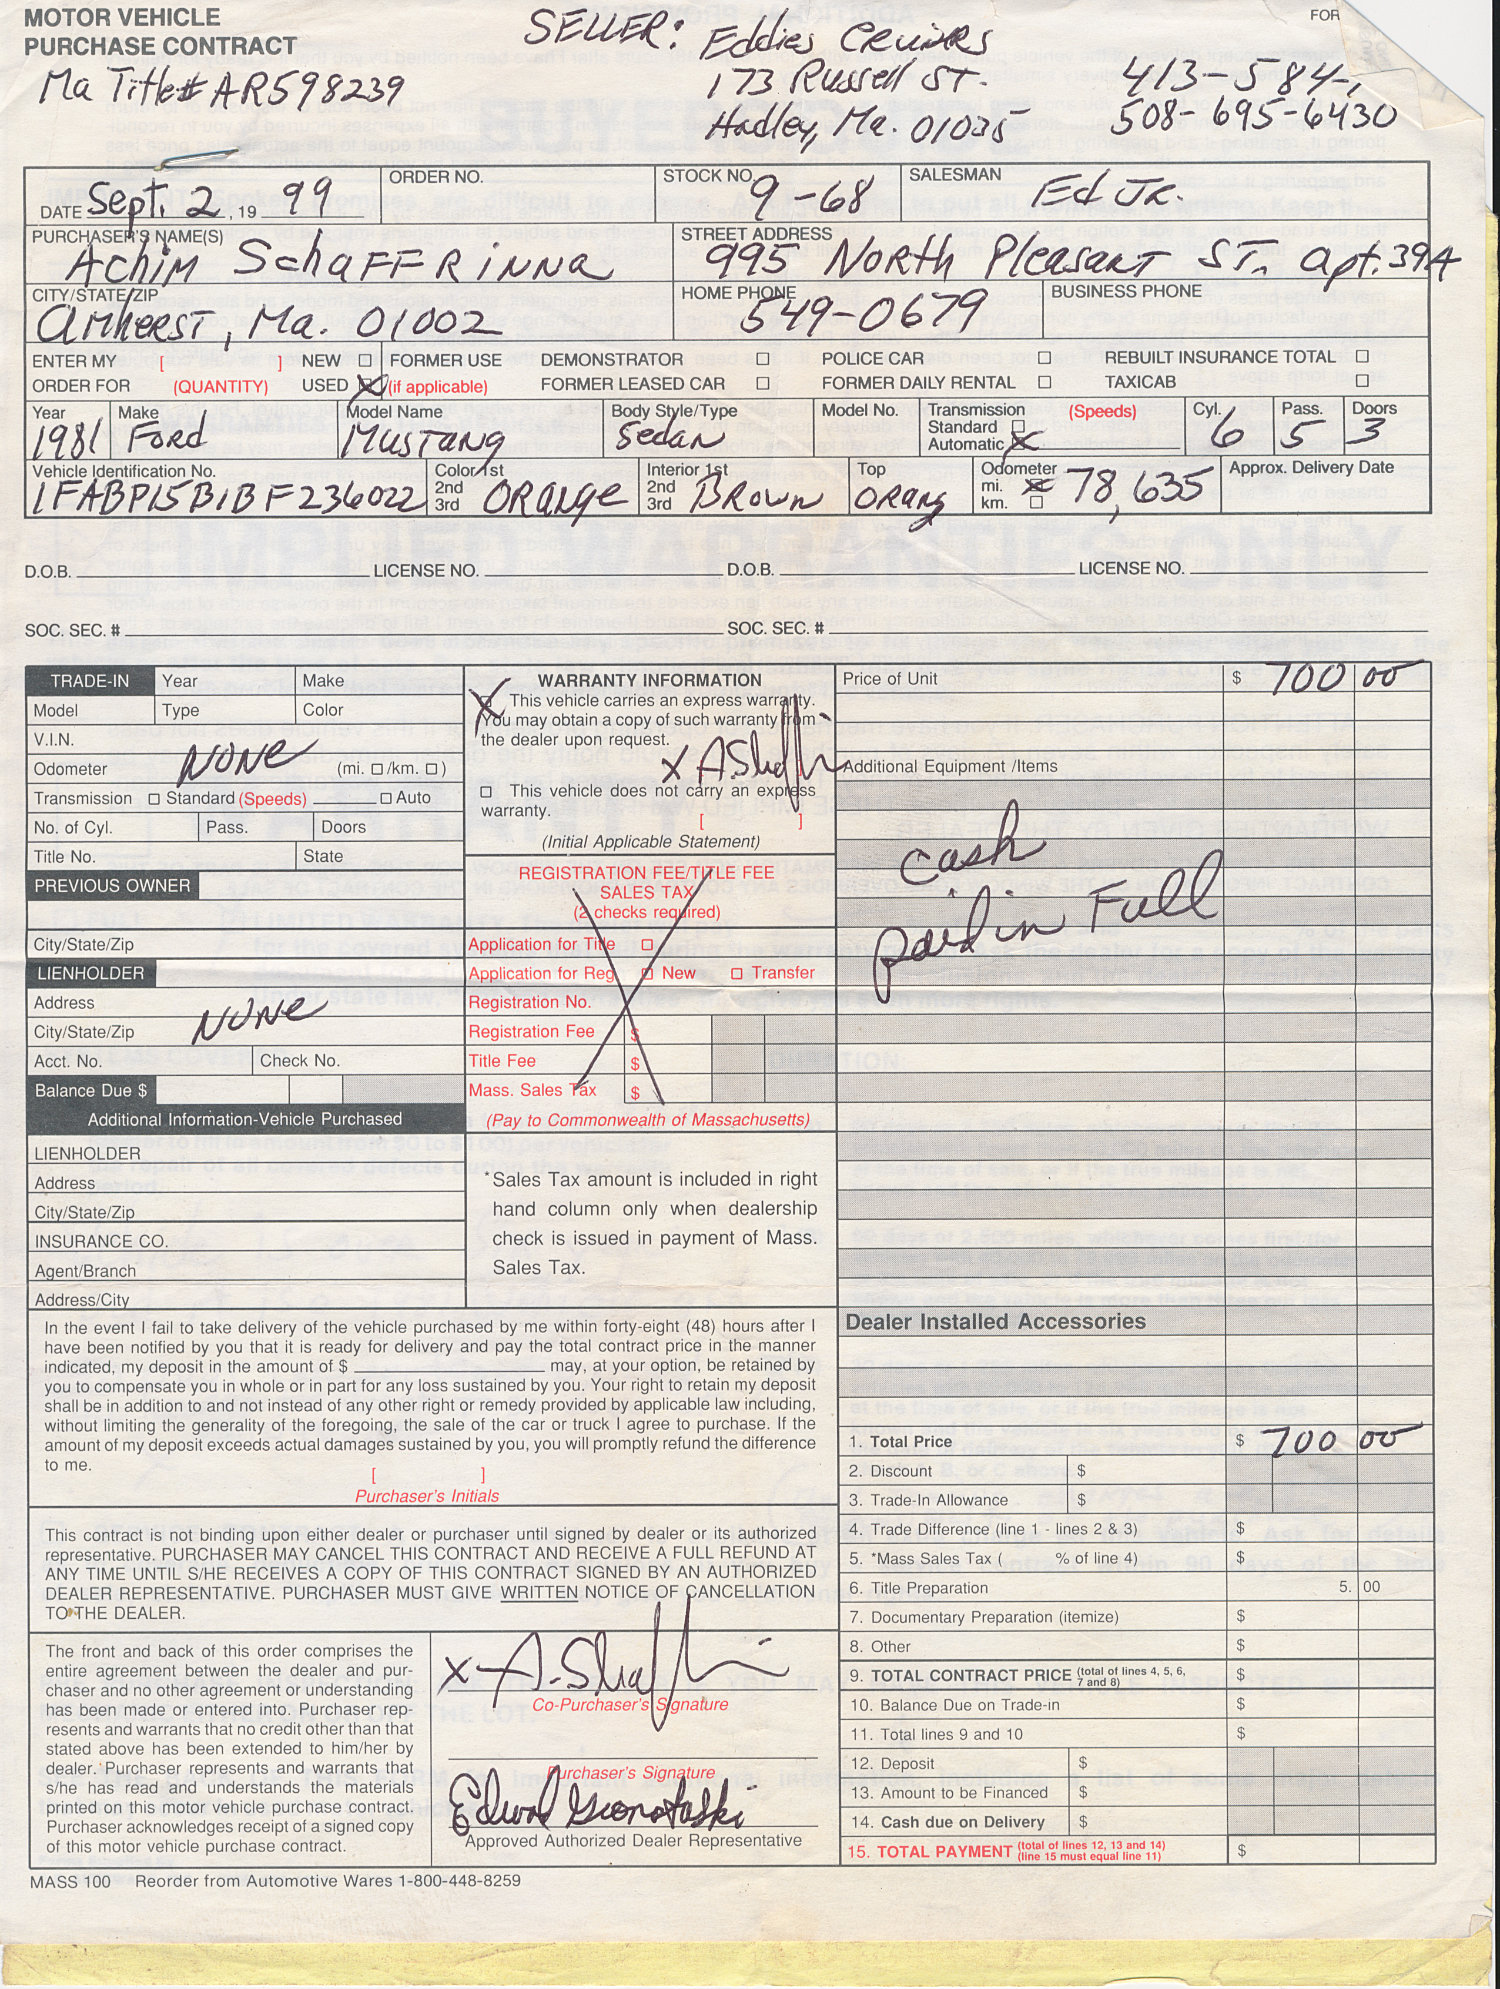 MOTOR VEHICLE
PURCHASE CONTRACT
Ma Title# AR598239
SELLER: Eddies Cruisers
173 Russell ST.
Hadley, Ma. 01035
413-584-
508-695-6430
FOR
DATE Sept. 2, 19 99
ORDER NO.
STOCK NO. 9-68
SALESMAN Ed JR.
PURCHASER'S NAME(S) Achim Schaffrinna
STREET ADDRESS 995 North Pleasant ST. apt. 39A
CITY/STATE/ZIP Amherst, Ma. 01002
HOME PHONE 549-0679
BUSINESS PHONE
ENTER MY [ ] NEW ☐ FORMER USE DEMONSTRATOR ☐ POLICE CAR ☐ REBUILT INSURANCE TOTAL ☐
ORDER FOR (QUANTITY) USED ☒ (if applicable) FORMER LEASED CAR ☐ FORMER DAILY RENTAL ☐ TAXICAB ☐
Year 1981
Make Ford
Model Name Mustang
Body Style/Type Sedan
Model No.
Transmission (Speeds)
Standard ☐
Automatic ☒
Cyl. 6
Pass. 5
Doors 3
Vehicle Identification No. 1FABP15B1BF236022
Color 1st 2nd 3rd Orange
Interior 1st 2nd 3rd Brown
Top Orang
Odometer mi. ☒ km. ☐ 78,635
Approx. Delivery Date
D.O.B. LICENSE NO. D.O.B. LICENSE NO.
SOC. SEC. # SOC. SEC. #
TRADE-IN Year Make
Model Type Color
V.I.N.
NONE
Odometer (mi. ☐ /km. ☐ )
Transmission ☐ Standard (Speeds) ☐ Auto
No. of Cyl. Pass. Doors
Title No. State
PREVIOUS OWNER
City/State/Zip
LIENHOLDER
Address
NONE
City/State/Zip
Acct. No. Check No.
Balance Due $
Additional Information-Vehicle Purchased
LIENHOLDER
Address
City/State/Zip
INSURANCE CO.
Agent/Branch
Address/City
WARRANTY INFORMATION
☒ This vehicle carries an express warranty.
You may obtain a copy of such warranty from
the dealer upon request.
X
☐ This vehicle does not carry an express
warranty.
[ ]
(Initial Applicable Statement)
REGISTRATION FEE/TITLE FEE
SALES TAX
(2 checks required)
Application for Title ☐
Application for Reg ☐ New ☐ Transfer
Registration No.
Registration Fee $
Title Fee $
Mass. Sales Tax $
(Pay to Commonwealth of Massachusetts)
*Sales Tax amount is included in right
hand column only when dealership
check is issued in payment of Mass.
Sales Tax.
Price of Unit $ 700 00
Additional Equipment /Items
cash
paid in Full
Dealer Installed Accessories
1. Total Price $ 700 00
2. Discount $
3. Trade-In Allowance $
4. Trade Difference (line 1 - lines 2 & 3) $
5. *Mass Sales Tax ( % of line 4) $
6. Title Preparation 5. 00
7. Documentary Preparation (itemize) $
8. Other $
9. TOTAL CONTRACT PRICE (total of lines 4, 5, 6, 7 and 8) $
10. Balance Due on Trade-in $
11. Total lines 9 and 10 $
12. Deposit $
13. Amount to be Financed $
14. Cash due on Delivery $
15. TOTAL PAYMENT (total of lines 12, 13 and 14) (line 15 must equal line 11) $
In the event I fail to take delivery of the vehicle purchased by me within forty-eight (48) hours after I
have been notified by you that it is ready for delivery and pay the total contract price in the manner
indicated, my deposit in the amount of $ may, at your option, be retained by
you to compensate you in whole or in part for any loss sustained by you. Your right to retain my deposit
shall be in addition to and not instead of any other right or remedy provided by applicable law including,
without limiting the generality of the foregoing, the sale of the car or truck I agree to purchase. If the
amount of my deposit exceeds actual damages sustained by you, you will promptly refund the difference
to me.
[ ]
Purchaser's Initials
This contract is not binding upon either dealer or purchaser until signed by dealer or its authorized
representative. PURCHASER MAY CANCEL THIS CONTRACT AND RECEIVE A FULL REFUND AT
ANY TIME UNTIL S/HE RECEIVES A COPY OF THIS CONTRACT SIGNED BY AN AUTHORIZED
DEALER REPRESENTATIVE. PURCHASER MUST GIVE WRITTEN NOTICE OF CANCELLATION
TO THE DEALER.
The front and back of this order comprises the
entire agreement between the dealer and pur-
chaser and no other agreement or understanding
has been made or entered into. Purchaser rep-
resents and warrants that no credit other than that
stated above has been extended to him/her by
dealer. Purchaser represents and warrants that
s/he has read and understands the materials
printed on this motor vehicle purchase contract.
Purchaser acknowledges receipt of a signed copy
of this motor vehicle purchase contract.
X
Co-Purchaser's Signature
Purchaser's Signature
Approved Authorized Dealer Representative
MASS 100 Reorder from Automotive Wares 1-800-448-8259